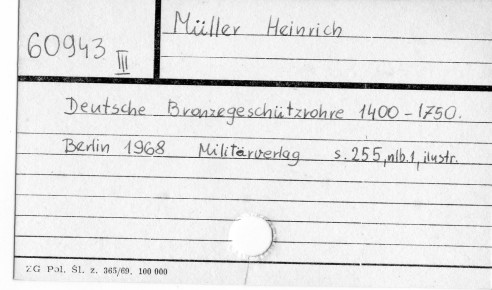 Müller Heinrich
60943 III
Deutsche Bronzegeschützrohre 1400-1750.
Berlin 1968 Militärverlag s. 255, nlb. 1, ilustr.
ZG Pol. Śl. z. 365/69. 100 000